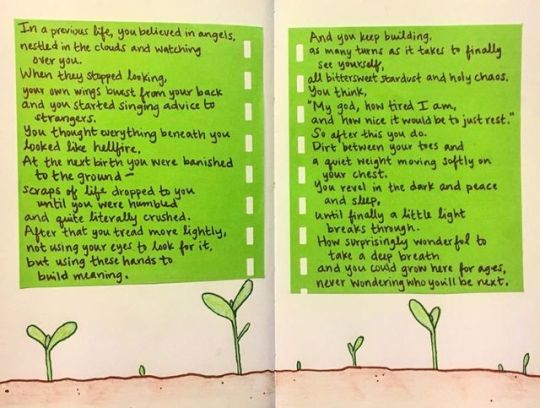 In a previous life, you believed in angels,
nestled in the clouds and watching
over you.
When they stopped looking,
your own wings burst from your back
and you started singing advice to
strangers.
You thought everything beneath you
looked like hellfire.
At the next birth you were banished
to the ground—
scraps of life dropped to you
until you were humbled
and quite literally crushed.
After that you tread more lightly,
not using your eyes to look for it,
but using these hands to
build meaning.
And you keep building,
as many turns as it takes to finally
see yourself,
all bittersweet stardust and holy chaos.
You think,
"My god, how tired I am,
and how nice it would be to just rest."
So after this you do.
Dirt between your toes and
a quiet weight moving softly on
your chest.
You revel in the dark and peace
and sleep,
until finally a little light
breaks through.
How surprisingly wonderful to
take a deep breath
and you could grow here for ages,
never wondering who you'll be next.